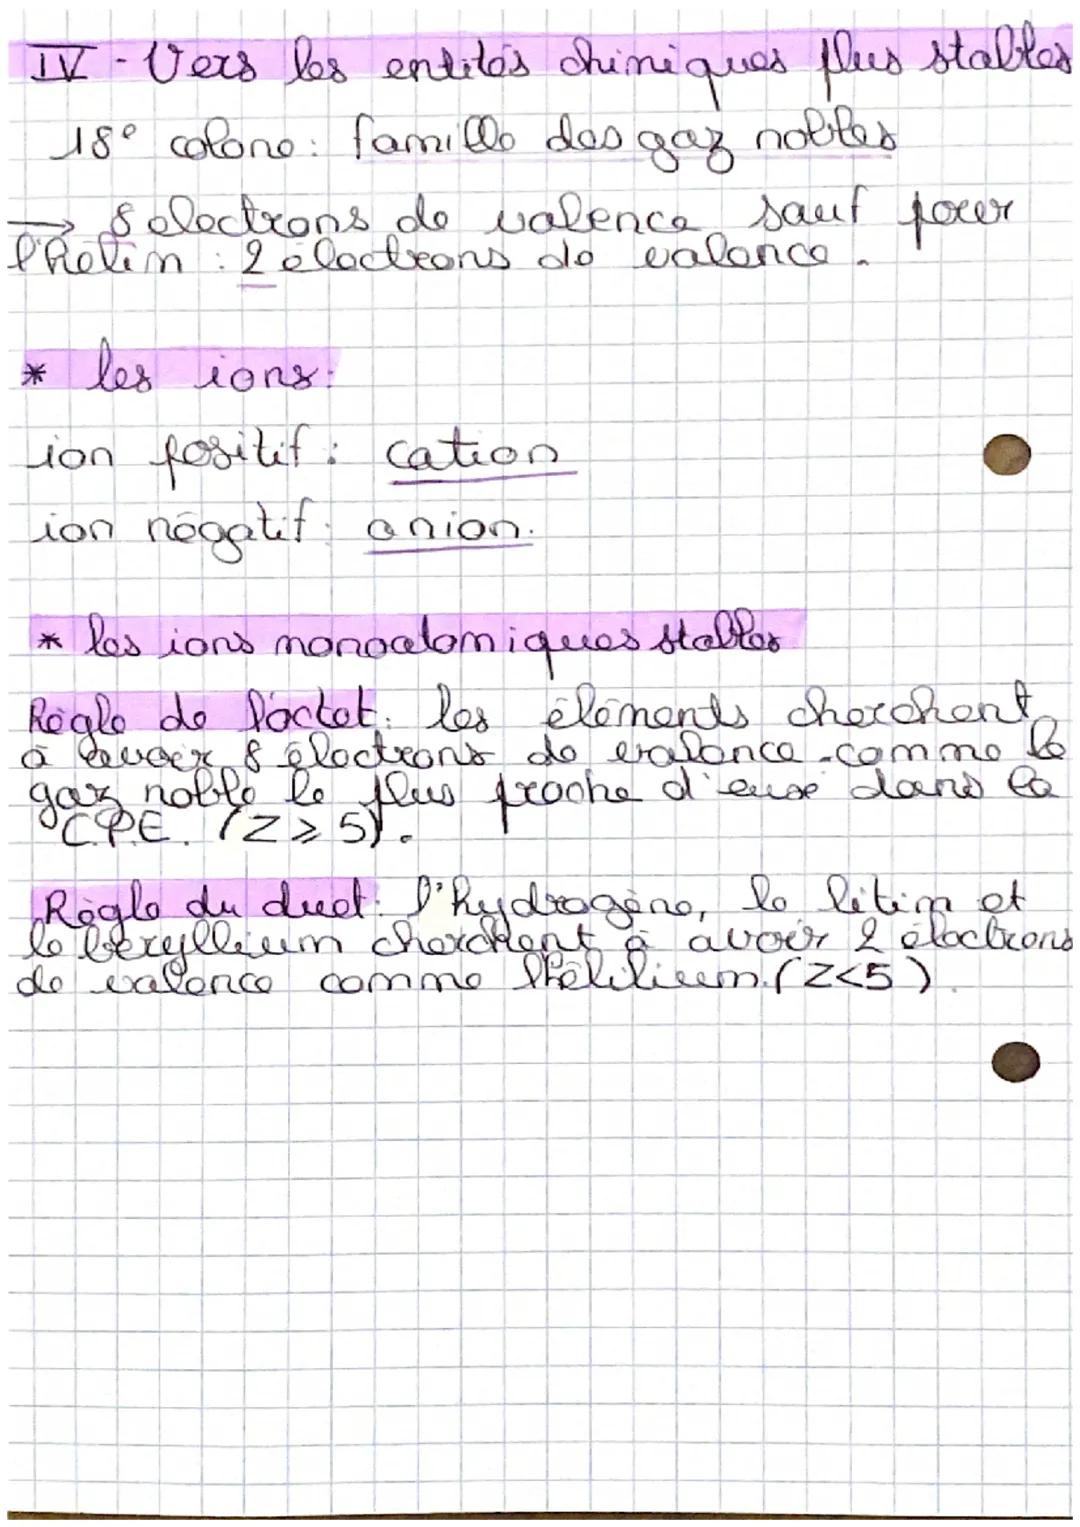 IV - Vers les entités chimiques plus stables
18° colone : famille des gaz nobles
→ 8 electrons de valence sauf pour
l'hélim : 2 électrons de valence.
* les ions:
ion positif : cation
ion négatif : anion.
* les ions monoatomiques stables
Règle de l'octet : les éléments cherchent
à avoir 8 électrons de valence comme le
gaz noble le plus proche d'eux dans la
C.P.E. (Z ⩾ 5).
Règle du duet : l'hydrogène, le litim et
le beryllium cherchent à avoir 2 électrons
de valence comme l'hélilium. (Z<5).